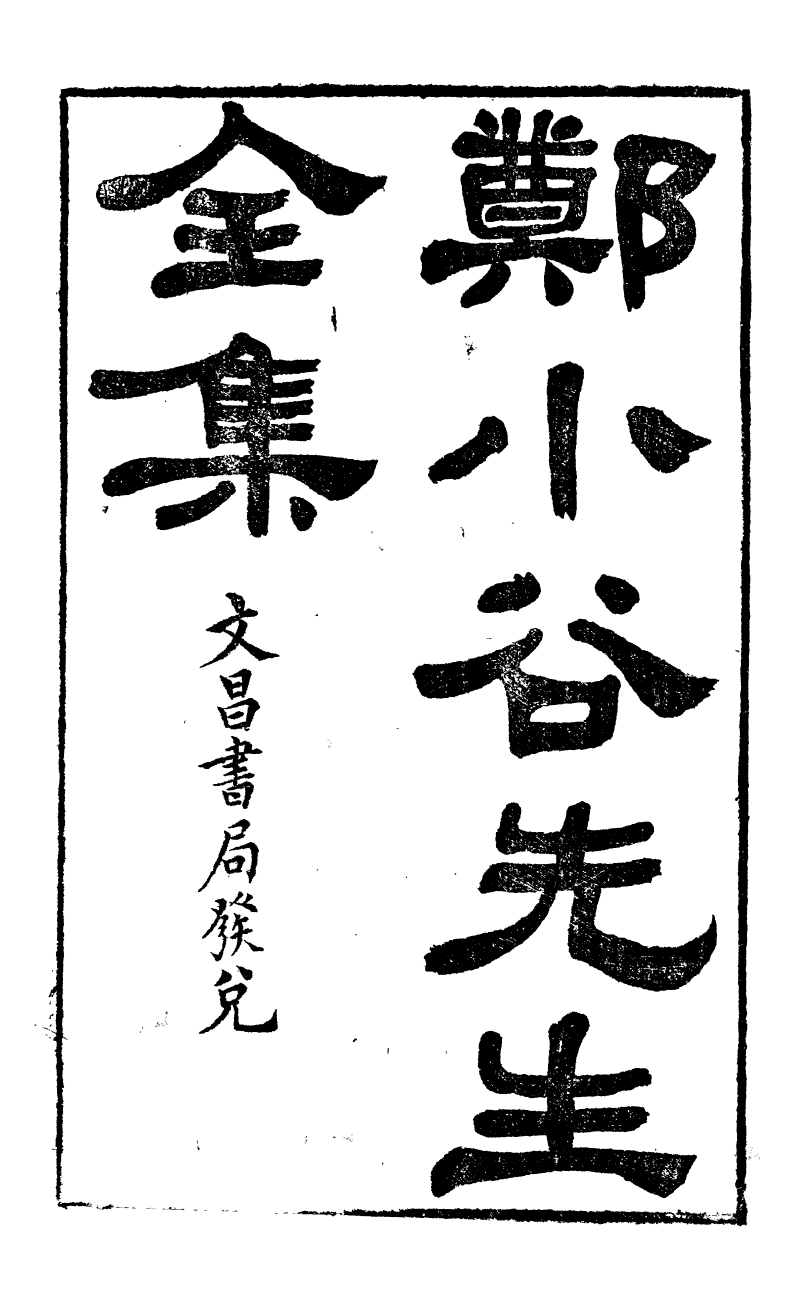 鄭小谷先生
全集
文昌書局發兌